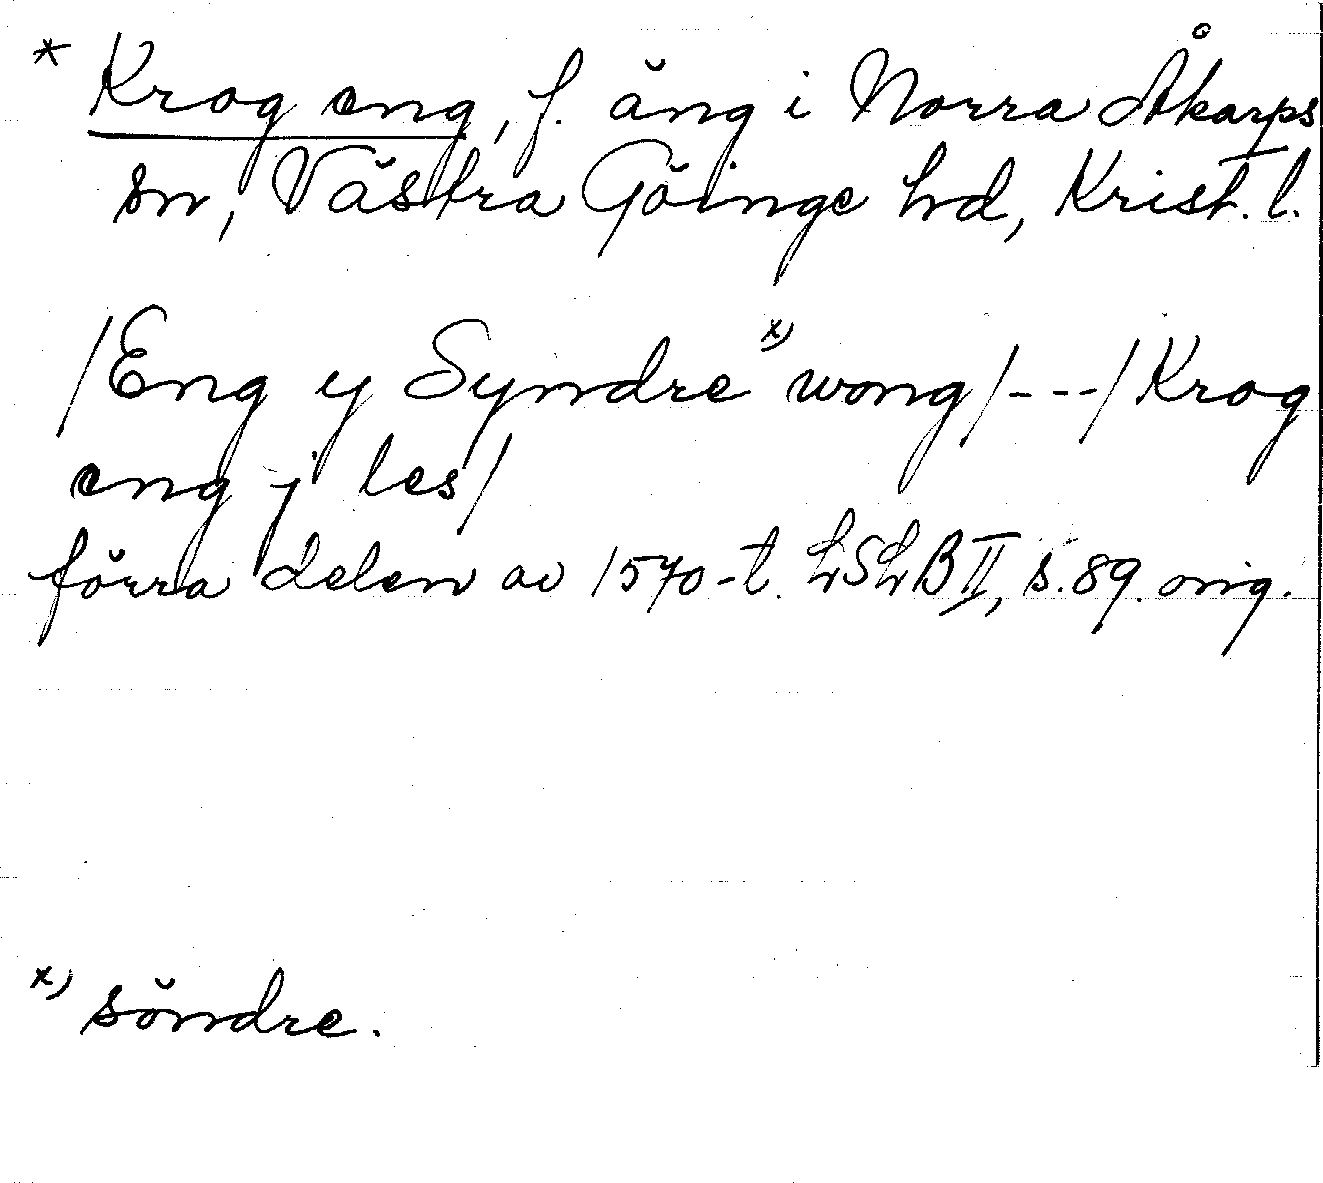 * Krog eng, f. äng i Norra Åkarps
sn, Västra Göinge hd, Krist. l.
/Eng y Syndre x) wong/---/Krog
eng j les/
förra delen av 1570-t. LSLB II, s. 89. orig.
x) söndre.